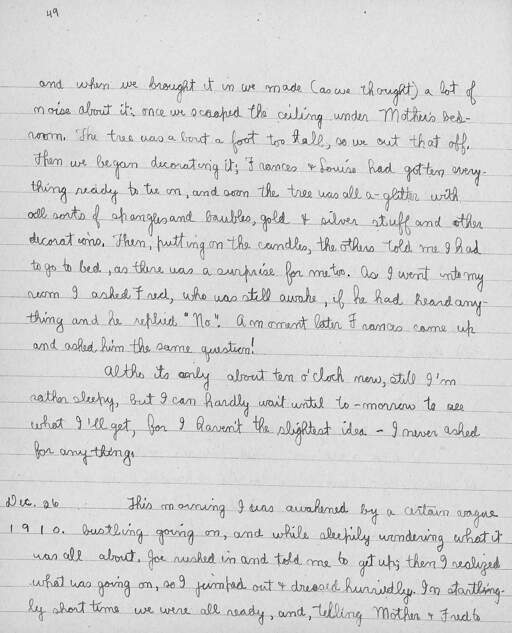 49
and when we brought it in we made (as we thought) a lot of
noise about it; once we scraped the ceiling under Mother's bed-
room. The tree was about a foot too tall, so we cut that off.
Then we began decorating it; Frances & Louise had gotten every-
thing ready to tie on, and soon the tree was all a-glitter with
all sorts of spangles and baubles, gold & silver stuff and other
decorations. Then, putting on the candles, the others told me I had
to go to bed, as there was a surprise for me too. As I went into my
room I asked Fred, who was still awake, if he had heard any-
thing and he replied "No". A moment later Frances came up
and asked him the same question!
Altho its only about ten o'clock now, still I'm
rather sleepy, but I can hardly wait until to-morrow to see
what I'll get, for I haven't the slightest idea - I never asked
for anything.
Dec. 26 This morning I was awakened by a certain vague
1910. bustling going on, and while sleepily wondering what it
was all about, Joe rushed in and told me to get up; then I realized
what was going on, so I jumped out & dressed hurriedly. In startling-
ly short time we were all ready, and, telling Mother & Fred to